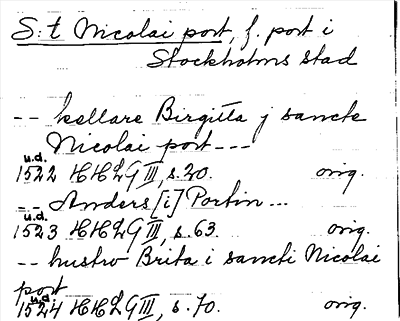 S:t Nicolai port, f. port i
Stockholms stad
-- kellare Birgitta j sancte
Nicolai port ---
u.d.
1522 HHLG III, s. 20. orig.
-- Anders [i] Portin ...
u.d.
1523 HHLG III, s. 63. orig.
-- hustro Brita i sancti Nicolai
port
u.d.
1524 HHLG III, s. 70. orig.